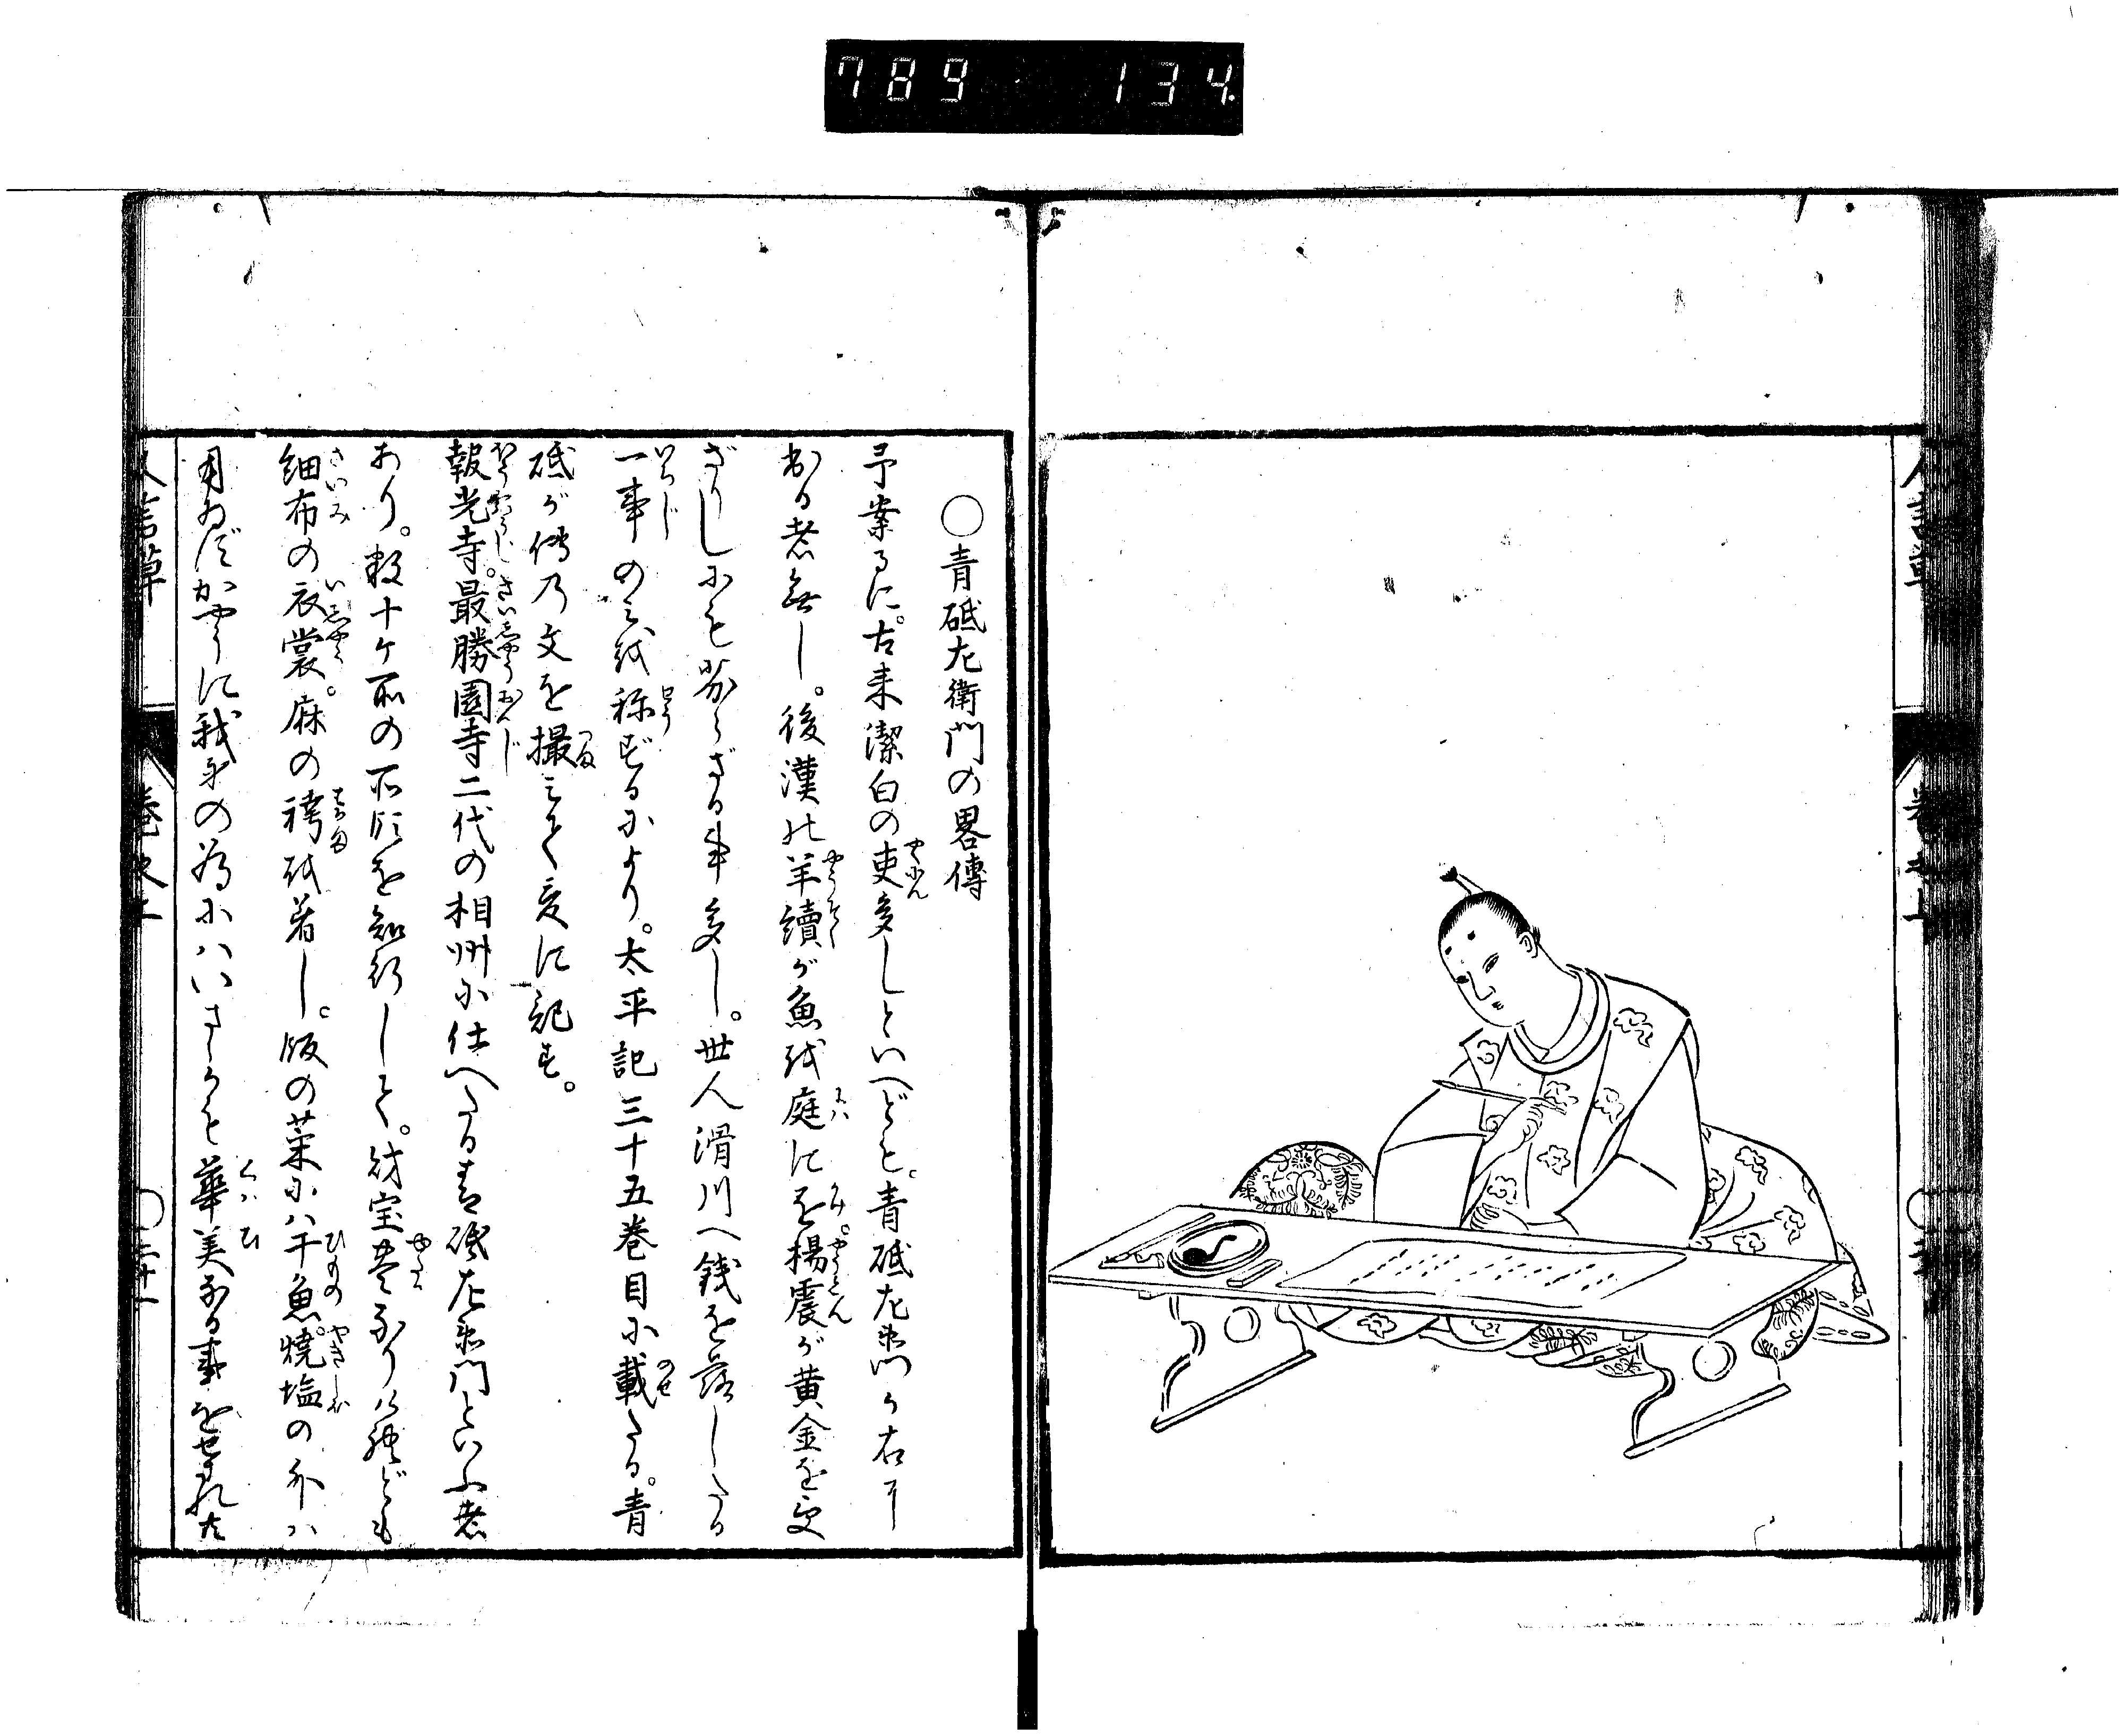 789 134
〇青砥左衛門の畧傳
予案るに。古来潔白の吏多しといへども。青砥左衛門が右に
出る者無し。後漢の羊續が魚を庭に
を楊震が黄金を受
ざりしにも劣らざる事多し。世人滑川へ銭を落したる
一事のみを称ずるにより。太平記三十五巻目に載たる。青
砥が傳乃文を撮みて爰に記す。
報光寺。最勝園寺二代の相州に仕へたる青砥左衛門といふ者
あり。数十ケ所の所領を知行して。財宝豊なりけれども
細布の衣裳。麻の袴を着し。飯の菜にハ干魚。焼塩の外ハ
用ゐずかやうに我身の為にハいさゝかも華美なる事をせざれ共